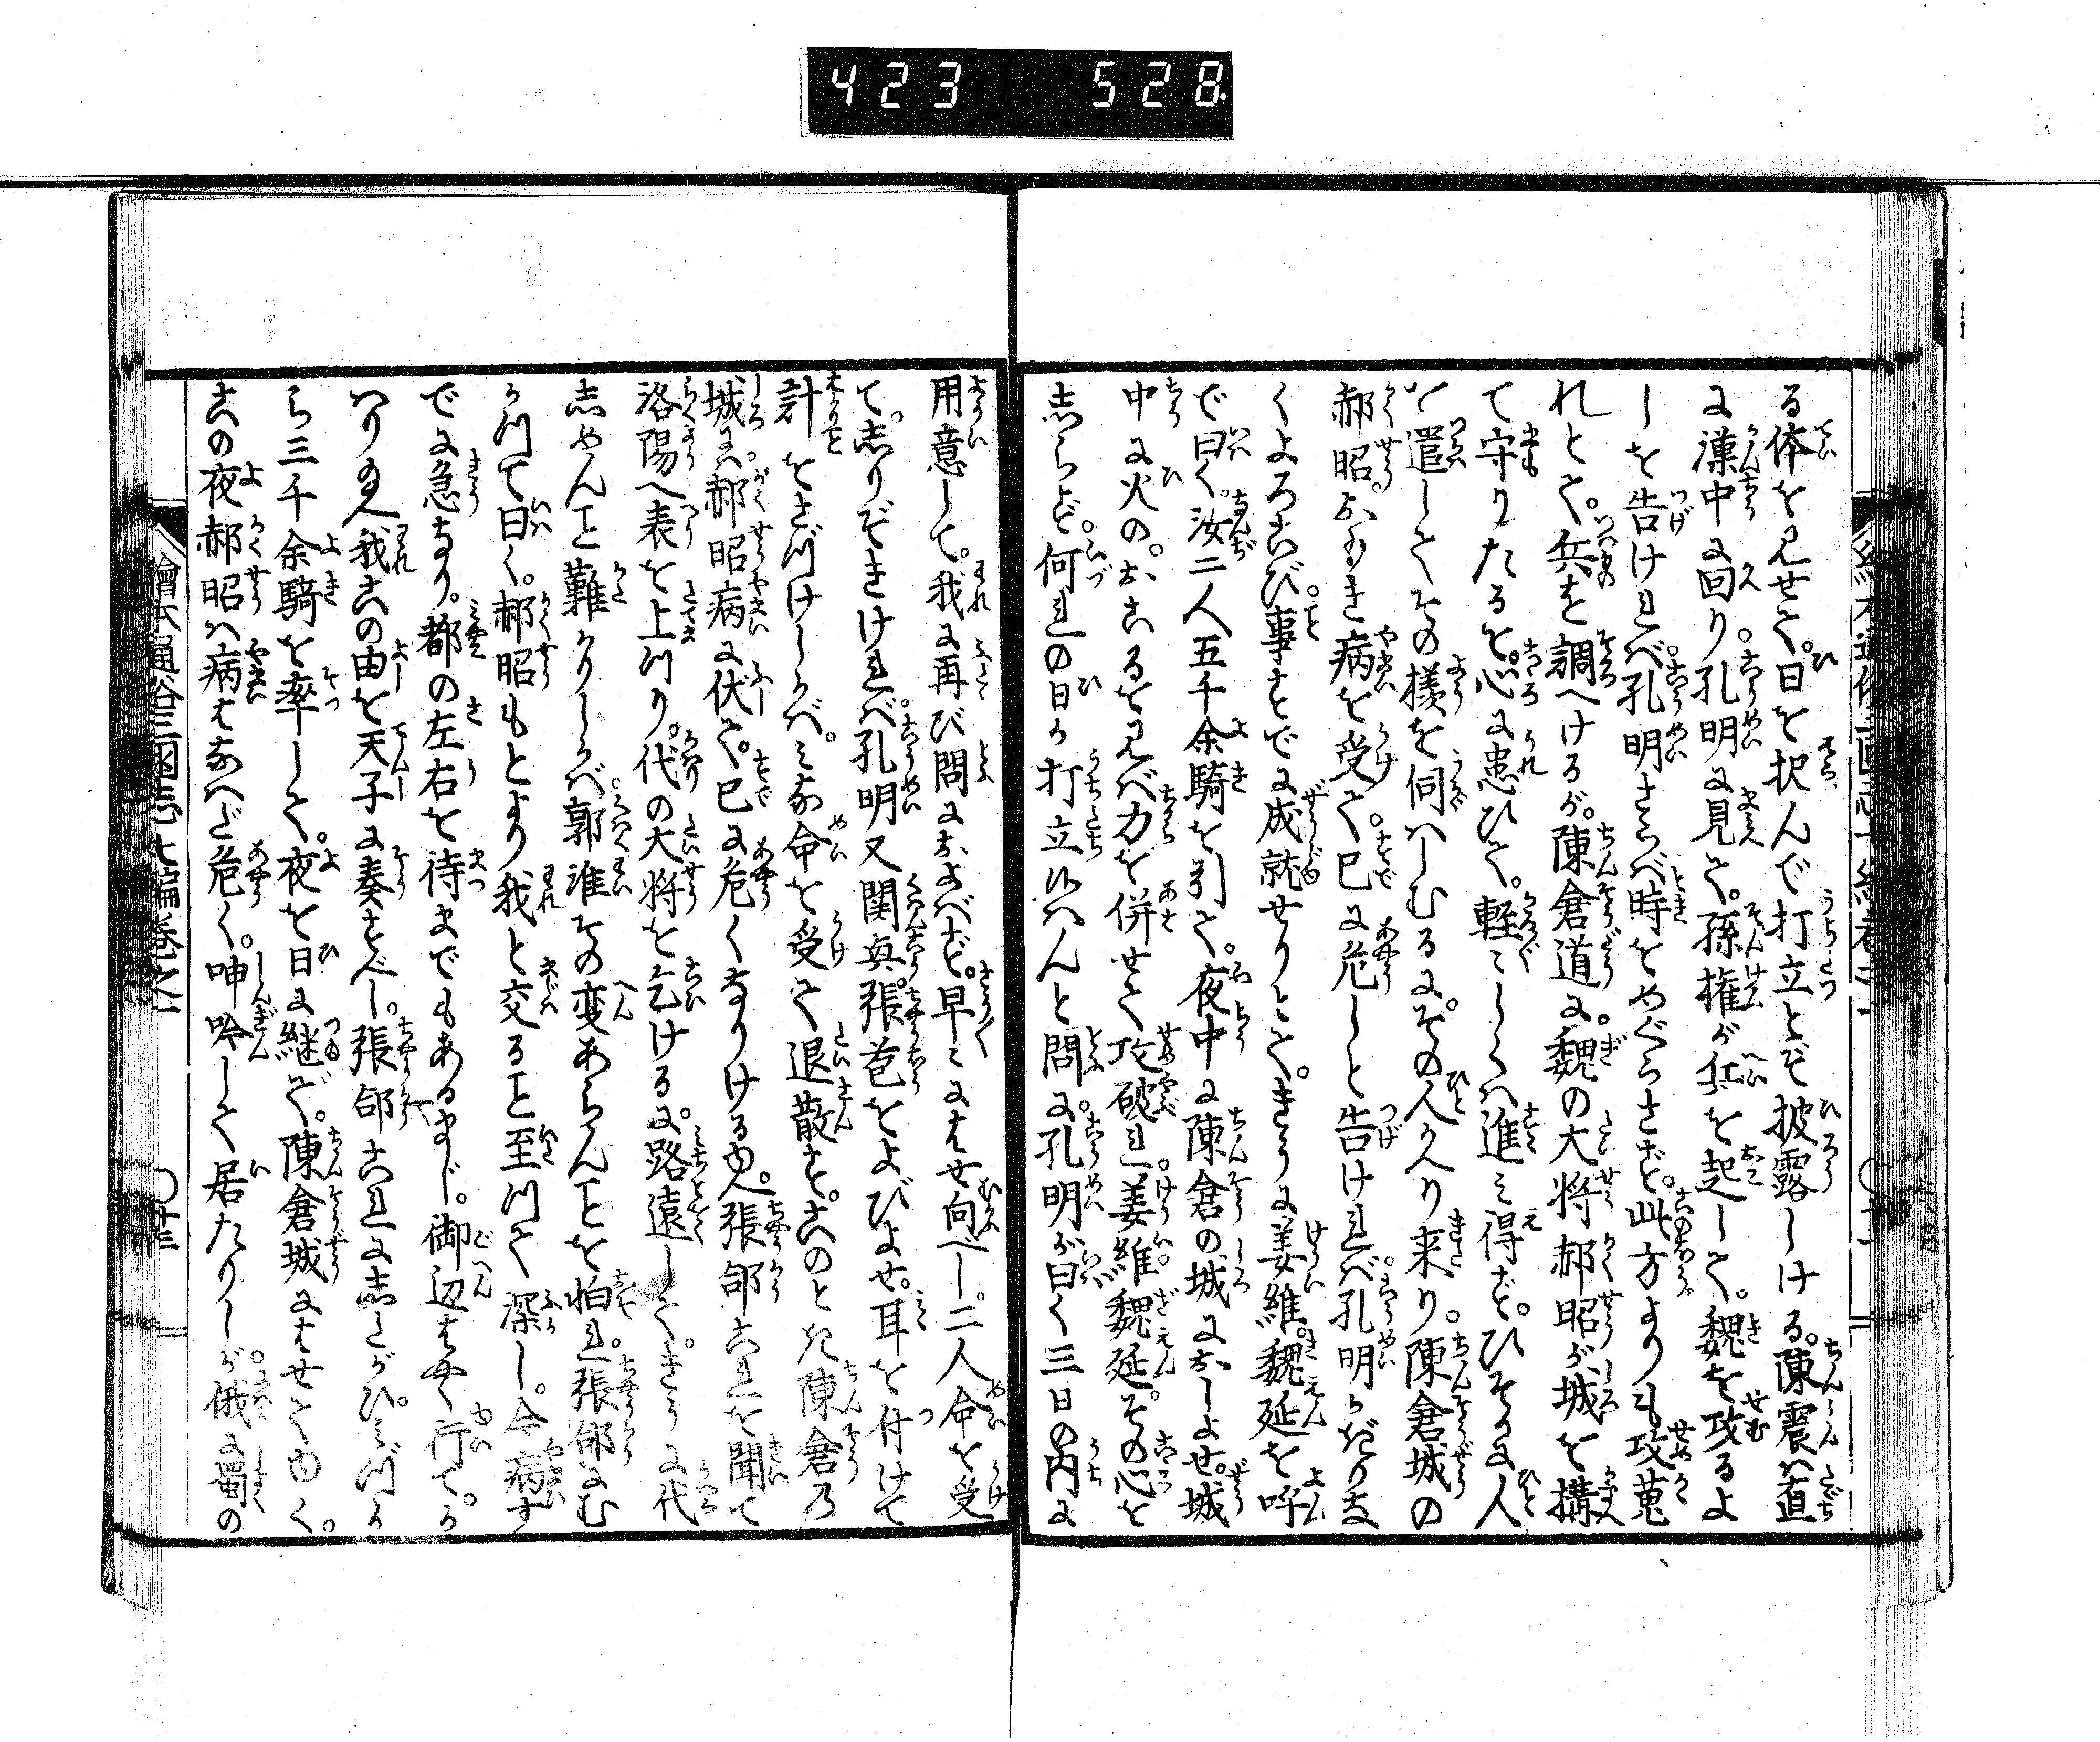 423 528
る体を見せて。日を択んで打立とぞ披露しける。陳震ハ直
に漢中に回り。孔明に見へて。孫権が兵を起して。魏を攻るよ
しを告けれバ。孔明さらバ時をめぐらさず。此方よりも攻蒐
れとて。兵を調へけるが。陳倉道に。魏の大将郝昭が。城を構
て守りたるを。心に患ひて。軽〻しくハ進ミ得ず。ひそかに人
を遣してその様を伺ハしむるに。その人かへり来り。陳倉城の
郝昭。おもき病を受て。已に危しと告けれバ。孔明かぎりな
くよろこび。事すでに成就せりとて。きうに姜維。魏延を呼
で曰く。汝二人五千余騎を引て。夜中に陳倉の城におしよせ。城
中に火の。おこるを見バ力を併せて攻破れ。姜維。魏延。その心を
志らず。何れの日か打立候ハんと問に。孔明が曰く三日の内に
用意して。我に再び問におよバず。早〻にはせ向べし。二人命を受
て。志りぞきけれバ。孔明又関興。張苞をよびよせ。耳を付けて
計をさづけしかバ。ミな命を受て退散す。このとき陳倉の
城にハ。郝昭病に伏て。已に危くなりけるゆへ。張郃これを聞て
洛陽へ表を上つり。代の大将を乞けるに。路遠して。きうに代
志めんこと難かりしかバ。郭淮その変あらんことを怕れ。張郃にむ
かつて曰く。郝昭もとより我と交ること至つて深し。今病す
でに急なり。都の左右を待までもあるまじ。御辺はやく行て。か
ハりたまへ我この由を天子に奏すべし。張郃これに志たがひ。ミづか
ら三千余騎を率して。夜を日に継で。陳倉城にはせてゆく。
この夜郝昭ハ病はなハだ危く。呻吟して居たりしが。俄に蜀の
繪本通俗三國志七編巻之一
〇十三